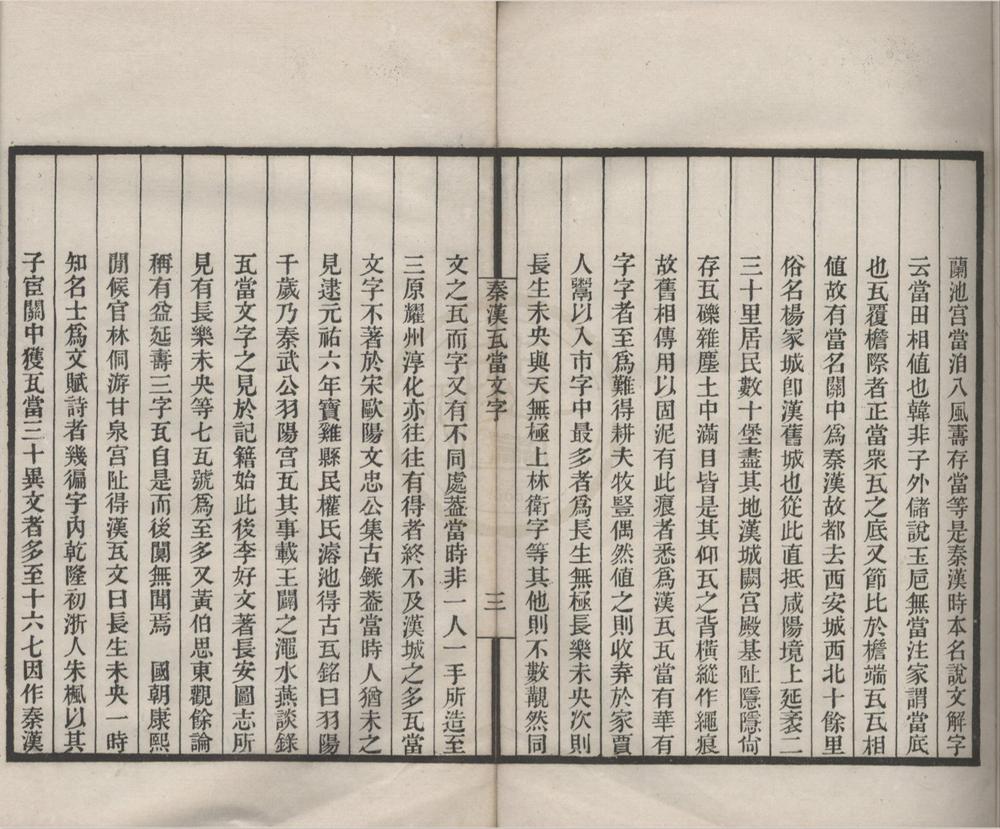 蘭池宫當洎八風壽存當等是秦漢時本名說文解字
云當田相值也韓非子外儲說玉巵無當注家謂當底
也瓦覆檐際者正當衆瓦之底又節比於檐端瓦瓦相
值故有當名關中爲秦漢故都去西安城西北十餘里
俗名楊家城卽漢舊城也從此直抵咸陽境上延袤二
三十里居民數十堡盡其地漢城闕宫殿基阯隱隱尙
存瓦礫雜塵土中滿目皆是其仰瓦之背橫縱作繩痕
故舊相傳用以固泥有此痕者悉爲漢瓦瓦當有華有
字字者至爲難得耕夫牧豎偶然值之則收弆於家賈
人鬻以入市字中最多者爲長生無極長樂未央次則
長生未央與天無極上林衛字等其他則不數覯然同
秦漢瓦當文字
三
文之瓦而字又有不同處葢當時非一人一手所造至
三原耀州淳化亦往往有得者終不及漢城之多瓦當
文字不著於宋歐陽文忠公集古錄葢當時人猶未之
見逮元祐六年寶雞縣民權氏濬池得古瓦銘曰羽陽
千歲乃秦武公羽陽宫瓦其事載王闢之澠水燕談錄
瓦當文字之見於記籍始此後李好文著長安圖志所
見有長樂未央等七瓦號爲至多又黃伯思東觀餘論
稱有益延壽三字瓦自是而後闃無聞焉 國朝康熙
閒候官林侗游甘泉宫阯得漢瓦文曰長生未央一時
知名士爲文賦詩者幾徧宇內乾隆初浙人朱楓以其
子宦關中獲瓦當三十異文者多至十六七因作秦漢